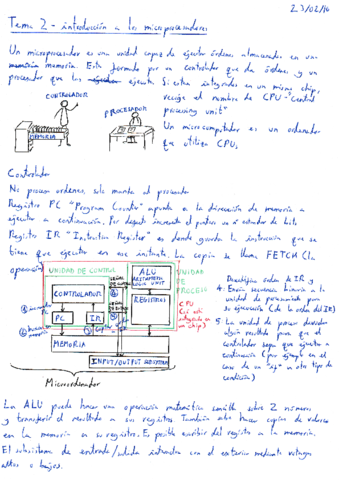 23/02/16
Tema 2 - introducción a los microprocesadores
Un microprocesador es una unidad capaz de ejecutar órdenes almacenadas en una
memoria. Está formado por un controlador que da órdenes y un
procesador que las ejecuta. Si están integrados en un mismo chip,
recibe el nombre de CPU "Central
processing unit"
CONTROLADOR
PROCESADOR
MEMORIA
Un microcomputador es un ordenador
que utiliza CPU.
Controlador
No procesa órdenes, solo manda al procesador
Registro PC "Program Counter" apunta a la dirección de memoria a
ejecutar a continuación. Por defecto incrementa el puntero
Registro IR "Instruction Register" es donde guarda la instrucción que se
tiene que ejecutar en ese instante. La copia se llama FETCH (la
operación)
UNIDAD DE CONTROL
UNIDAD
DE
PROCESO
ALU
ARITHMETIC
LOGIC UNIT
CONTROLADOR
REGISTROS
PC
IR
CPU
(si está
integrado en
un chip)
MEMORIA
INPUT/OUTPUT SUBSYSTEM
Microordenador
orden de IR
4: Envía secuencia binaria a la
unidad de procesamiento para
su ejecución (de la orden del IR)
5: La unidad de proceso devuelve
algún resultado para que el
controlador sepa que ejecutar a
continuación (por ejemplo en el
caso de un "if" u otro tipo de
condición)
La ALU puede hacer una operación matemática sencilla sobre 2 números
y transferir el resultado a sus registros. También sabe hacer copias de valores
en la memoria a su registro. Es posible escribir del registro a la memoria.
El subsistema de entrada/salida interactúa con el exterior mediante voltajes
altos o bajos.